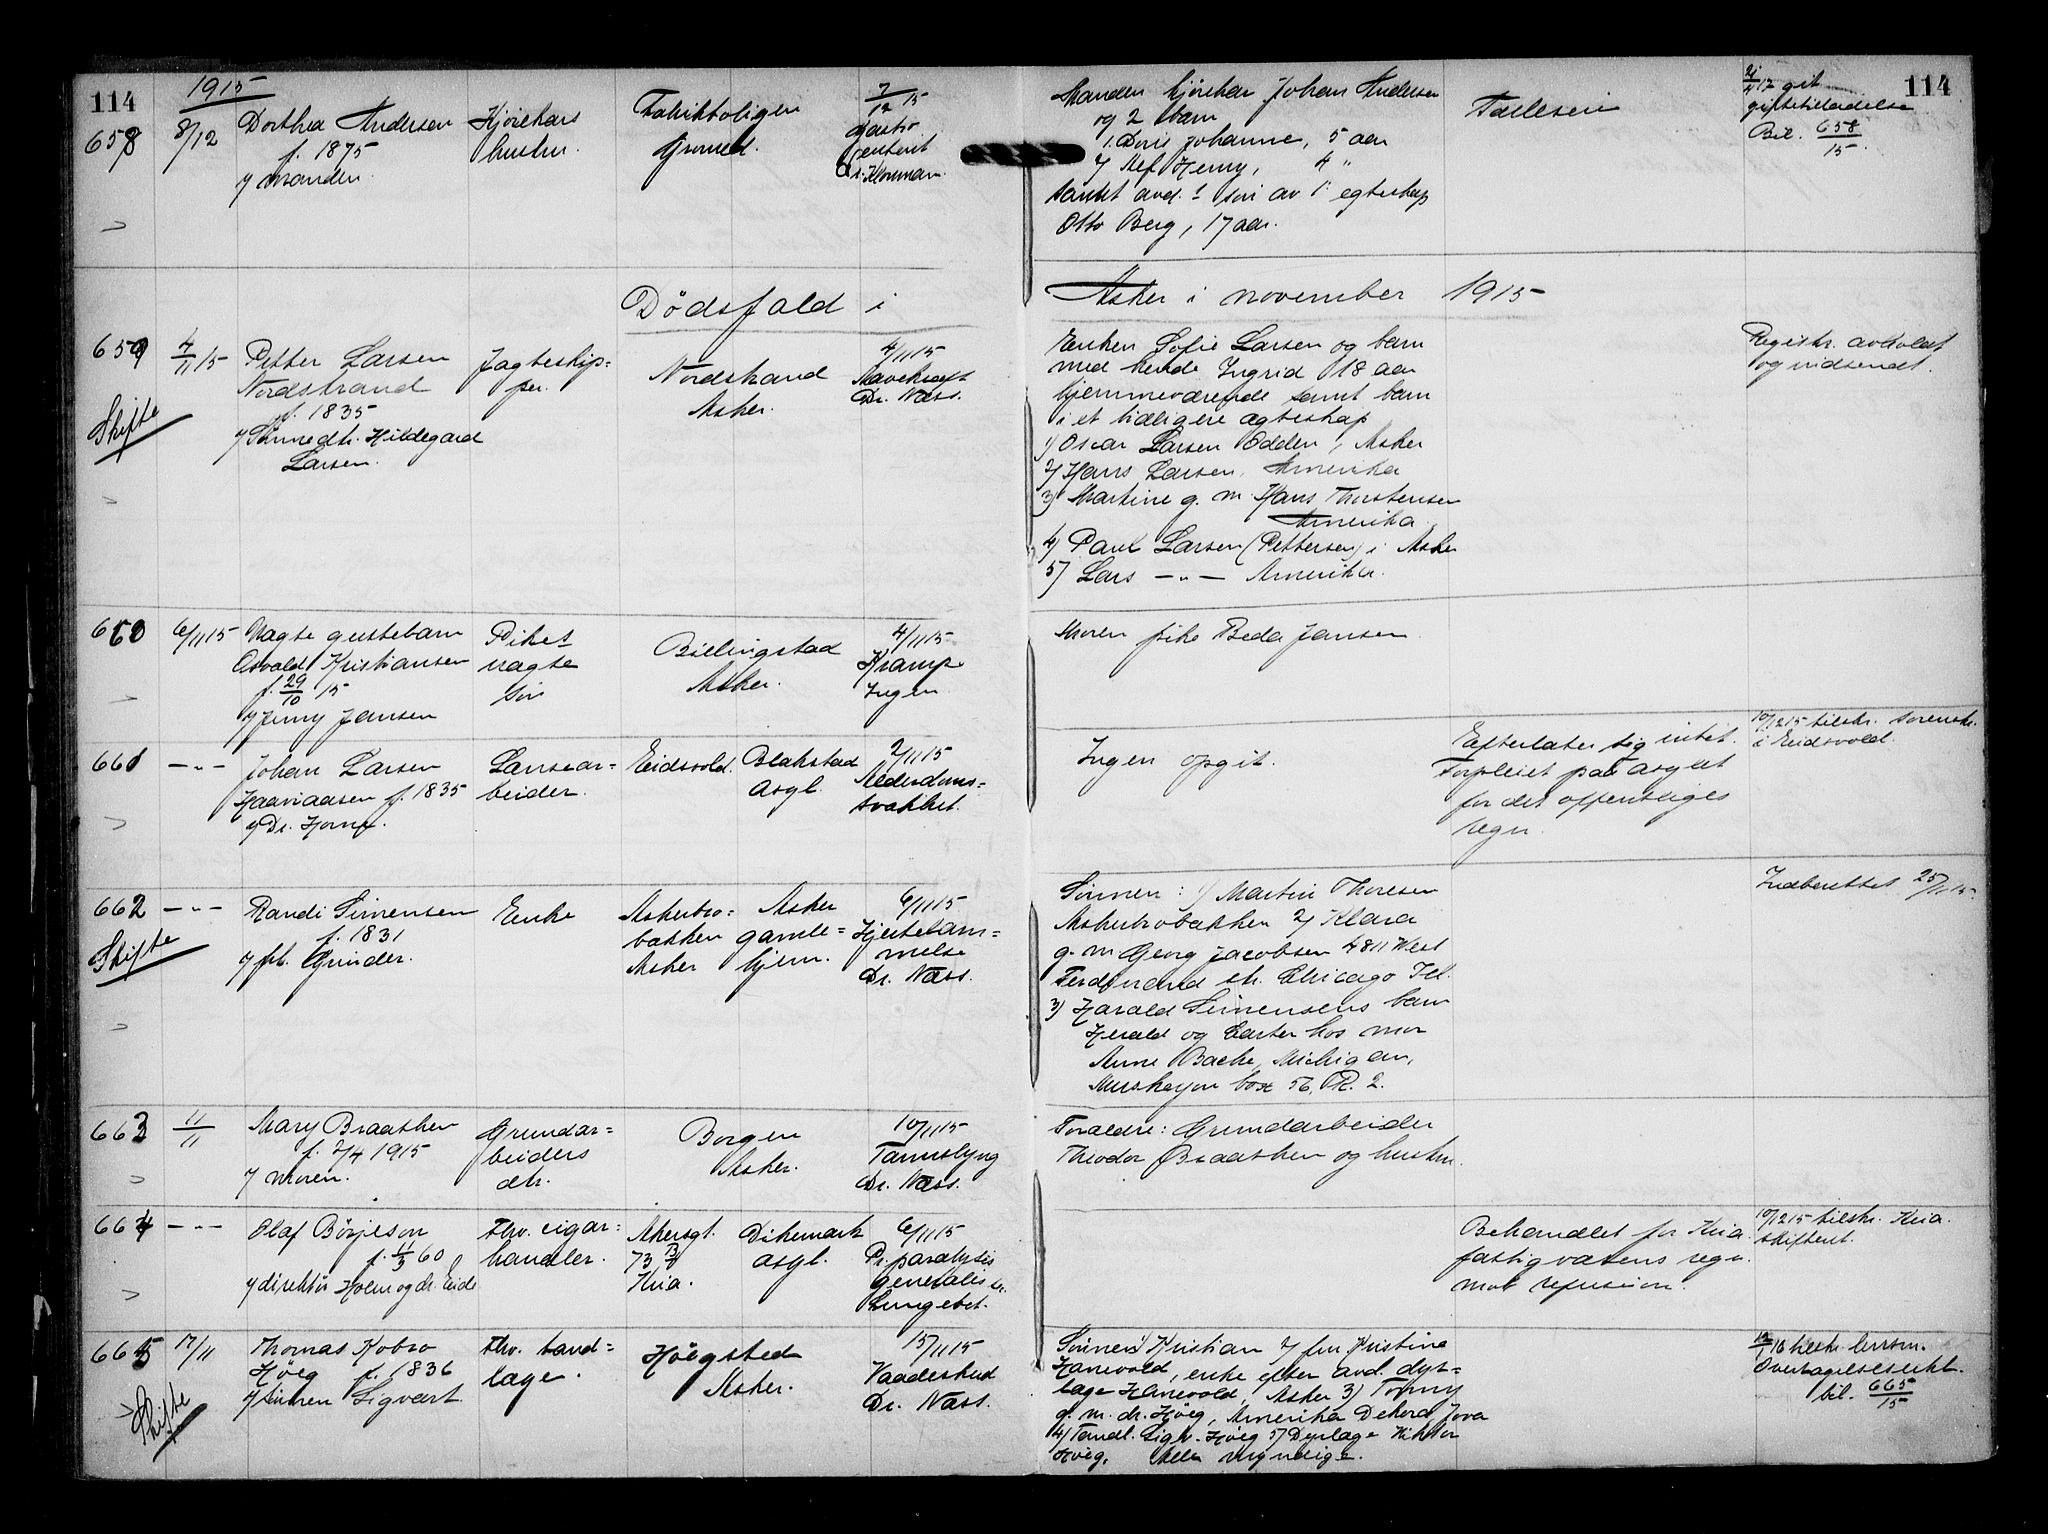 114
1915
658
8/12
Dorthea Andersen
f. 1875
v/ manden.
Kjørekars
hustru.
Fabrikboligen
Grorud.
7/12 15
Gastro
enterit
Dr. Klouman.
Manden kjørekar Johan Andersen
og 2 barn
1. Doris Johanne, 5 aar
2/ Alf Henry, 4 "
samt avd. 1 søn av 1' egteskap
Otto Berg, 17 aar.
Fælleseie
2/4 17 git
giftetilladelse
Bil. 658/15.
114
Dödsfald i Asker i november 1915
659
4/11 15
Petter Larsen
Nordstrand
f. 1835
v/ Sönnedtr. Hildegard
Larsen.
Skifte
Jagteskip=
per.
Nordstrand
Asker.
4/11 15
Mavekræft
Dr. Næss.
Enken Sofie Larsen og barn
med hende Ingrid 18 aar
hjemmeværende samt barn
i et tidligere ægteskap
1) Oscar Larsen Odden, Asker
2/ Hans Larsen, Amerika
3) Martine g. m. Hans Thorstensen
Amerika.
4) Paul Larsen (Pettersen) i Asker
5) Lars —"— Amerika.
Registr. avholdt
og indsendt.
660
6/11 15
Uægte guttebarn
Osvald Kristiansen
f. 29/10 15
v/ Jenny Jansen
Pikes
uægte
søn
Billingstad
Asker.
4/11 15
Krampe
Ingen
Moren pike Beda Jansen
661
—"—
Johan Larsen
Haaviaasen f. 1835
v/ Dr. Horne.
Løsear=
beider.
Eidsvold.
Blakstad
asyl.
2/11 15
Alderdoms=
svakhet.
Ingen opgit.
Efterlater sig intet.
Forpleiet paa asylet
for det offentliges
regn.
10/12 15 tilskr. sorenskr.
i Eidsvold.
662
—"—
Randi Simensen
f. 1831
v/ frk. Grinder.
Skifte
Enke
Askerbro=
bakken
Asker
Asker
gamle=
hjem.
6/11 15
Hjertelam=
melse
Dr. Næss.
Sönnen: 1) Martin Thoresen
Askerbrobakken 2/ Klara
g. m. Georg Jacobsen 4811 West
Ferdinand str. Chicago Ill.
3) Harald Simensens barn
Herald og Carter hos mor
Anne Bache, Michigan,
Muskegon box 56, R. 2.
Indberettet 25/11 15.
663
11/11
Mary Braathen
f. 2/4 1915
v/ moren.
Grundar=
beiders
dtr.
Borgen
Asker.
10/11 15
Tarmslyng
Dr. Næss.
Forældre: Grundarbeider
Theodor Braathen og hustru.
664
—"—
Olaf Börjeson
f. 11/3 60
v/ direktör Holm og dr. Eide
Fhv. cigar=
handler.
Akersgt.
73
Kria.
Dikemark
asyl.
6/11 15
Pr. paralysis
generalis
Lungebet.
Behandlet for Kria.
fattigvæsens regn.
mot refusion.
10/12 15 tilskr. Kria.
skifteret.
665
17/11
Thomas Kobro
Höeg f. 1836
v/ sönnen Sigvart.
Skifte
Fhv. tand=
læge.
Höegsted
Asker.
15/11 15
Vaadeskud
Dr. Næss.
Sönnen 1) Kristian 2/ fru Kristine
Hanevold, enke efter avd. dyr=
læge Hanevold, Asker 3) Tonny
g. m. dr. Höeg, Amerika Dekora, Jova
4) Tandl. Sigv. Höeg 5) Dyrlæge Viktor
Höeg. Alle myndige.
Overtagelsesskt.
bil. 665/15